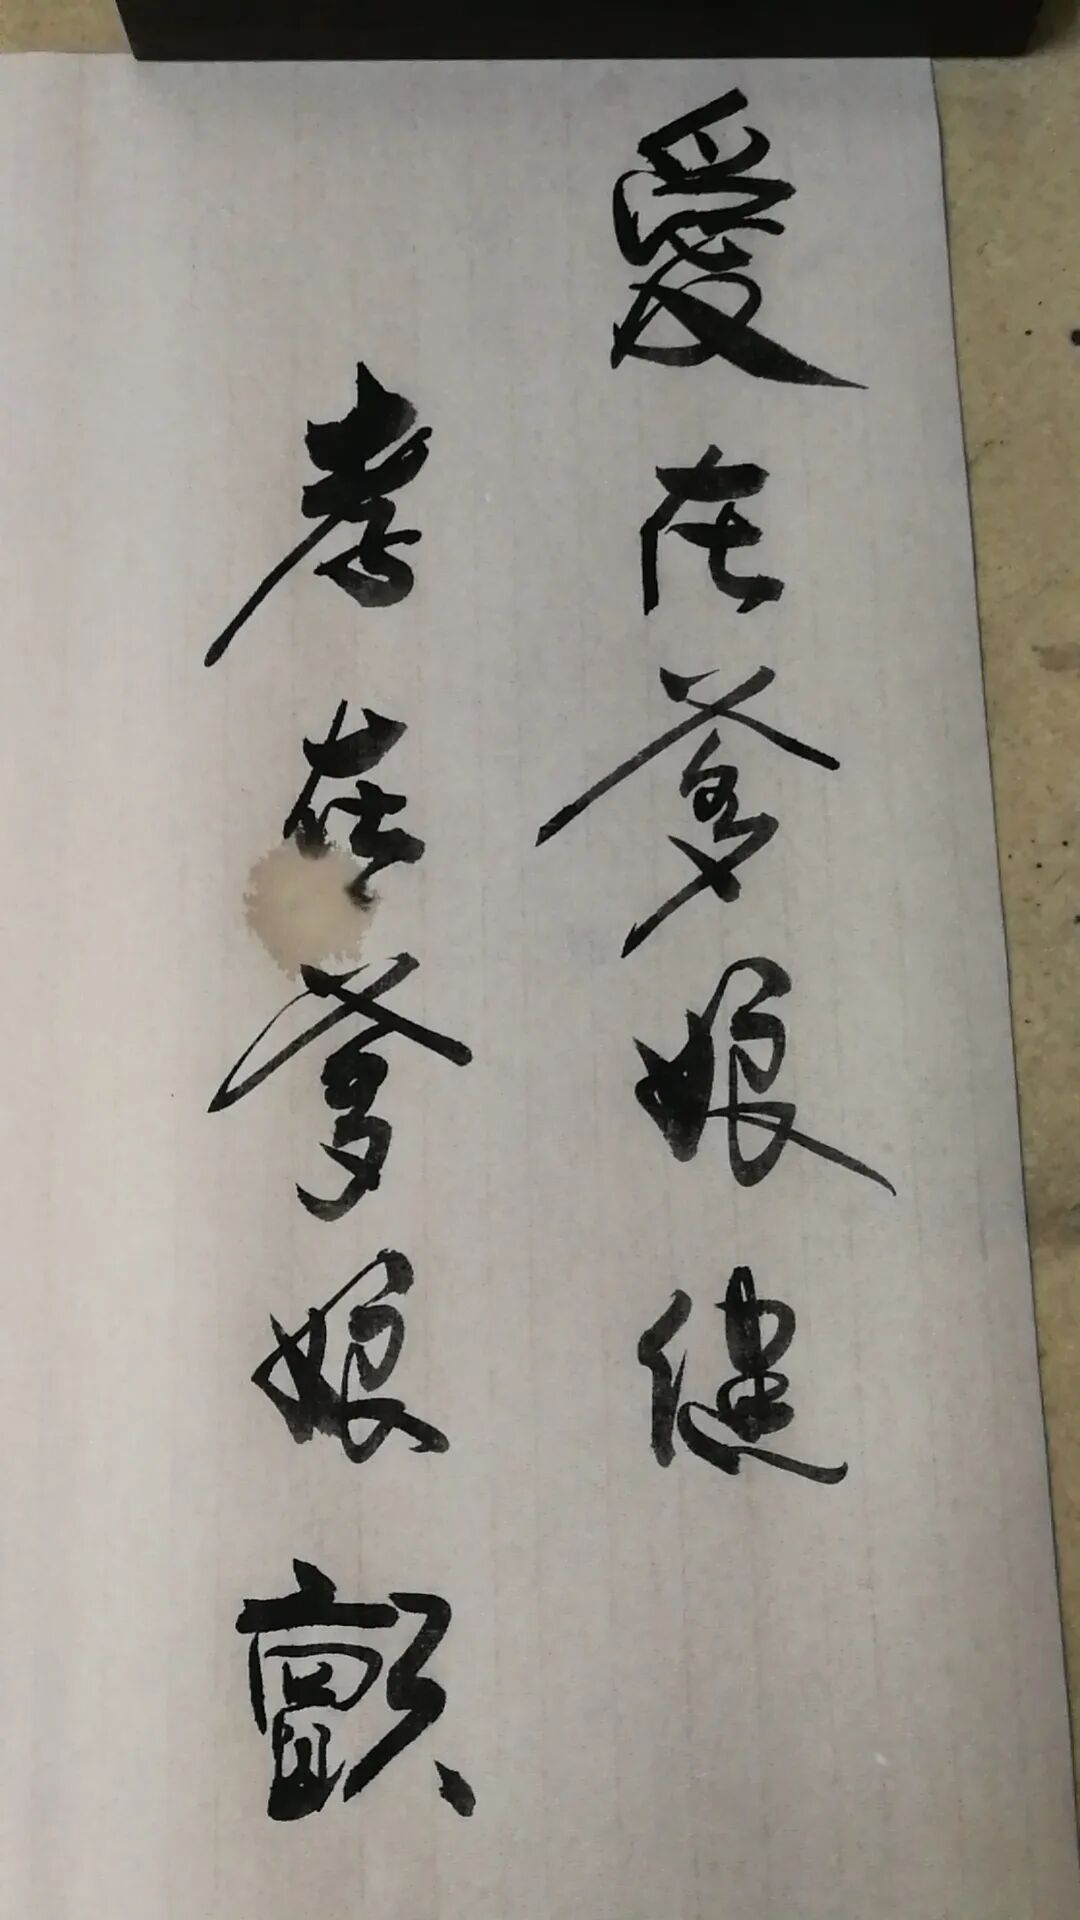 愛在爹娘健
孝在爹娘顫